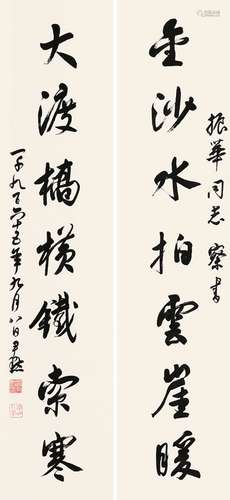 振華同志 察書
金沙水拍雲崖暖
大渡橋橫鐵索寒
一千九百六十五年九月八日尹默